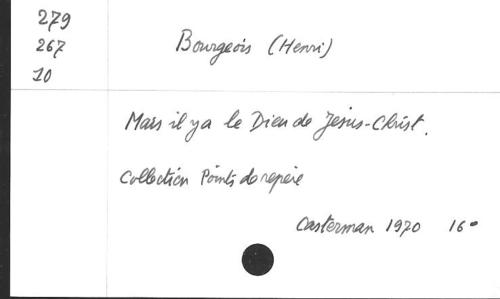 279
267
10
Bourgeois (Henri)
Mais il y a le Dieu de Jésus-Christ.
Collection Points de repère
Casterman 1970 16°